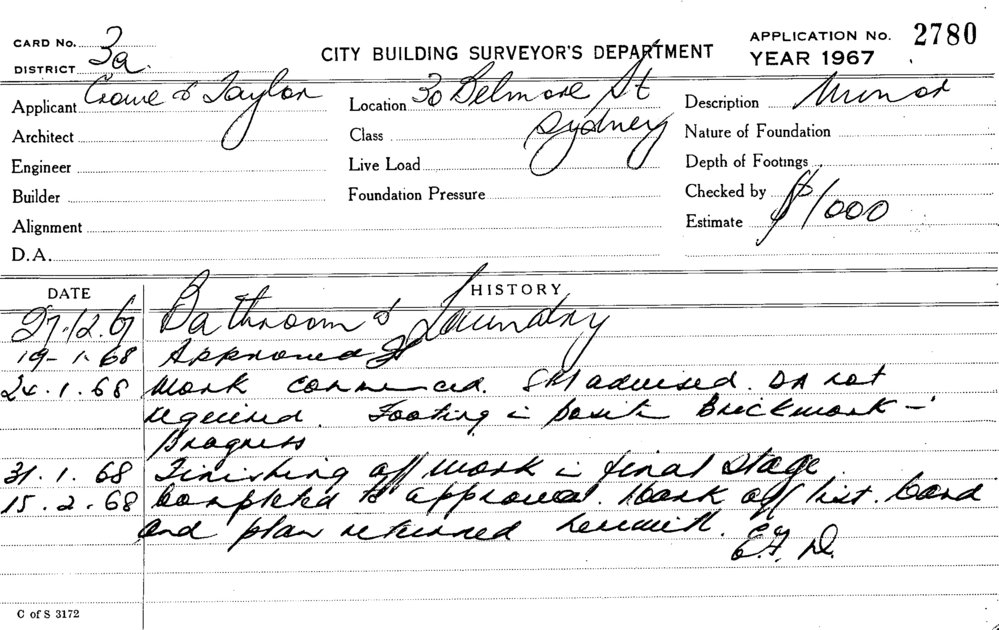 CARD No. 3a
DISTRICT
CITY BUILDING SURVEYOR'S DEPARTMENT
APPLICATION No. 2780
YEAR 1967
Applicant Crowe & Taylor
Location 30 Belmore St
Sydney
Description Minor
Architect
Class
Nature of Foundation
Engineer
Live Load
Depth of Footings
Builder
Foundation Pressure
Checked by
Alignment
Estimate $1000
D.A.
DATE
HISTORY
27.12.67 Bathroom & Laundry
19-1-68 Approved
24.1.68 Work commenced. advised. DA not
required. Footing in position Brickwork in
Progress
31.1.68 Finishing off work in final stage.
15.2.68 Completed to approval. Mark off list. Card
and plan returned herewith.
E.F.D.
C of S 3172